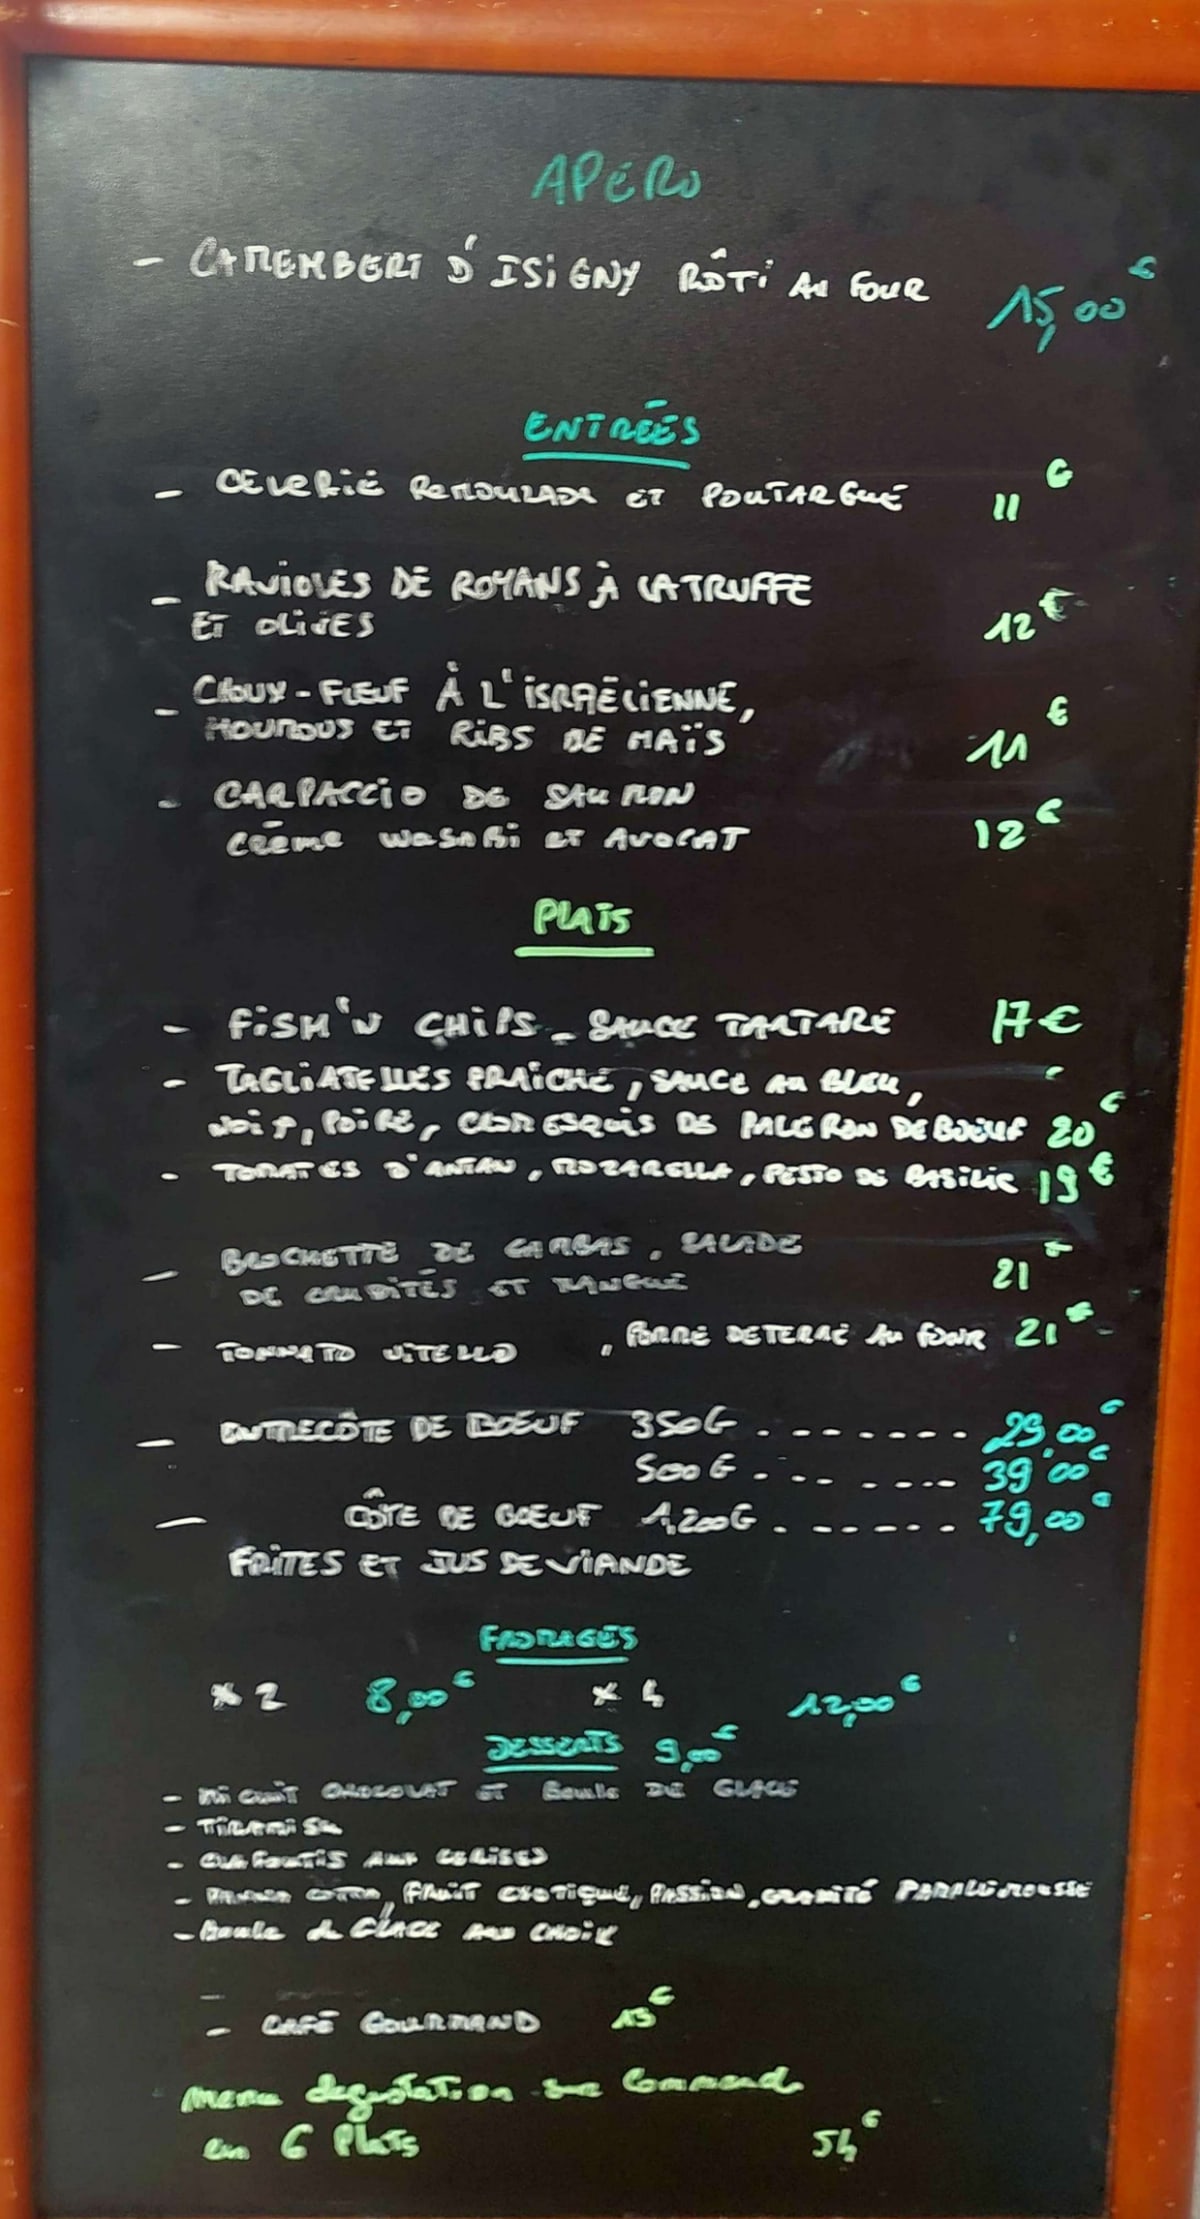 APERO
- CAMEMBERT D'ISIGNY RÔTI AU FOUR 15,00€
ENTRÉES
- CELERIE REMOULADE ET POUTARGUE 11€
- RAVIOLES DE ROYANS À LA TRUFFE
ET OLIVES 12€
- CHOUX-FLEUF À L'ISRAËLIENNE,
HOUMOUS ET RIBS DE MAÏS 11€
- CARPACCIO DE SAUMON
CRÈME WASABI ET AVOCAT 12€
PLATS
- FISH'N CHIPS - SAUCE TARTARE 17€
- TAGLIATELLES FRAICHE, SAUCE AU BLEU,
NOIX, POIRE, DE PALERON DE BOEUF 20€
- TOMATES D'ANTAN, MOZARELLA, PESTO DE BASILIC 19€
- BROCHETTE DE GAMBAS, SALADE
DE CRUDITÉS ET MANGUE 21€
- TONNATO VITELLO , POMME DE TERRE AU FOUR 21€
- ENTRECÔTE DE BOEUF 350G ....... 29,00€
500G ....... 39,00€
- CÔTE DE BOEUF 1,200G ....... 79,00€
FRITES ET JUS DE VIANDE
FROMAGES
x 2 8,00€ x 4 12,00€
DESSERTS 9,00€
- MI CUIT CHOCOLAT ET BOULE DE GLACE
- TIRAMISU
- CLAFOUTIS AUX CERISES
- PANNA COTTA, FRUIT EXOTIQUE, PASSION, GRANITÉ
- Boule de GLACE AUX CHOIX
- CAFÉ GOURMAND 13€
Menu degustation sur Command
en 6 Plats 54€